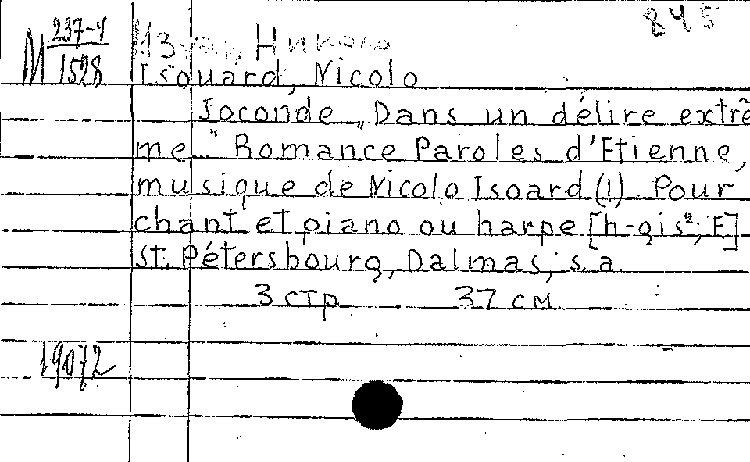 845
М 237-4/1528
Изуар, Николо
Isouard, Nicolo
Joconde „Dans un délire extrê
me“ Romance Paroles d'Etienne,
musique de Nicolo Isoard (!) Pour
chant et piano ou harpe [h-gis², E]
St. Pétersbourg, Dalmas, s.a.
3 стр. 37 см.
19072